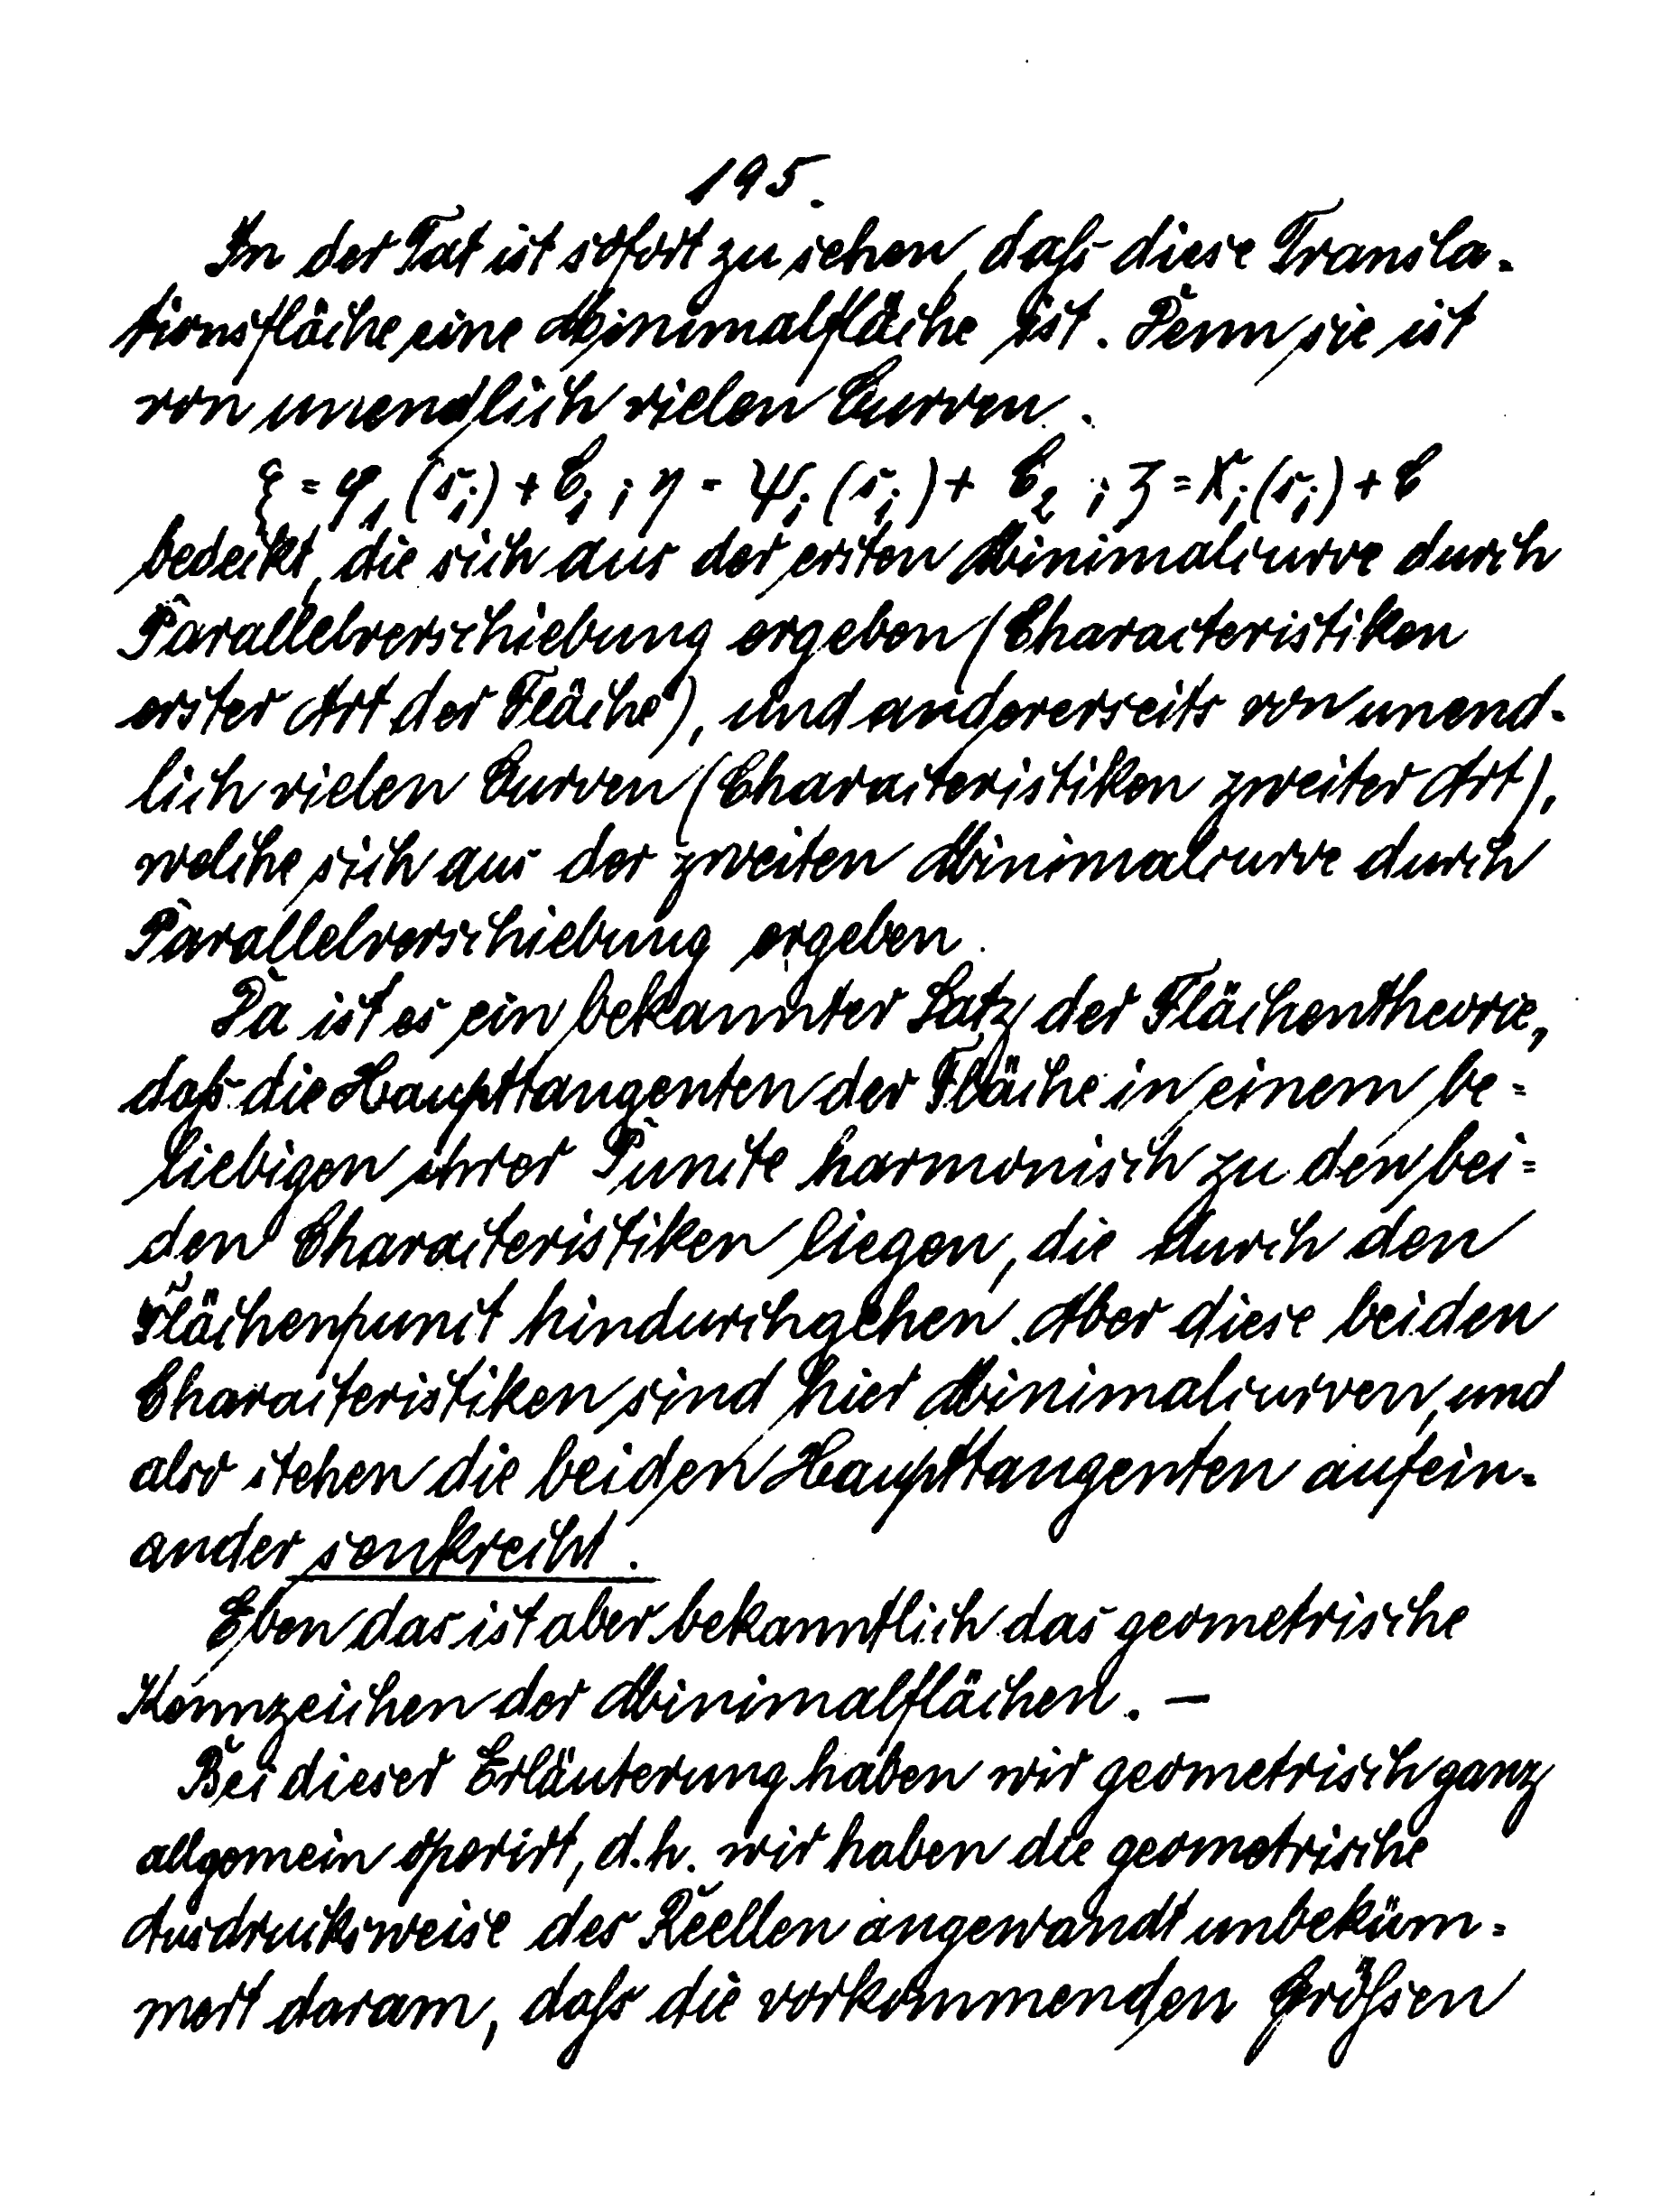 195.
In der Tat ist sofort zu sehen, dafs diese Transla-
tionsfläche eine Minimalfläche ist. Denn sie ist
von unendlich vielen Curven
ξ = φ₁(s₁) + C₁ ; η = ψ₁(s₁) + C₂ ; ζ = χ₁(s₁) + C
bedeckt, die sich aus der ersten Minimalcurve durch
Parallelverschiebung ergeben (Characteristiken
erster Art der Fläche), und andererseits von unend-
lich vielen Curven (Characteristiken zweiter Art),
welche sich aus der zweiten Minimalcurve durch
Parallelverschiebung ergeben.
Da ist es ein bekannter Satz der Flächentheorie,
dafs die Haupttangenten der Fläche in einem be-
liebigen ihrer Puncte harmonisch zu den bei-
den Characteristiken liegen, die durch den
Flächenpunct hindurchgehen. Aber diese beiden
Characteristiken sind hier Minimalcurven, und
also stehen die beiden Haupttangenten aufein-
ander senkrecht.
Eben das ist aber bekanntlich das geometrische
Kennzeichen der Minimalflächen. —
Bei dieser Erläuterung haben wir geometrisch ganz
allgemein operirt, d.h. wir haben die geometrische
Ausdrucksweise des Reellen angewandt unbeküm-
mert daram, dafs die vorkommenden Gröfsen